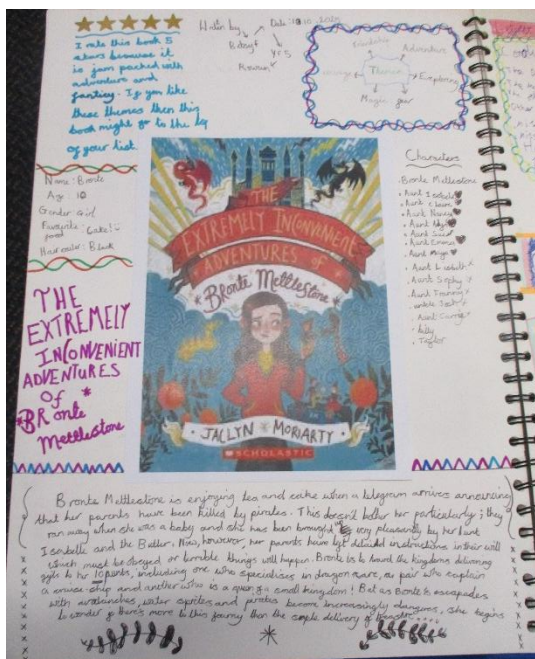 I rate this book 5
stars because it
is jam packed with
adventure and
fantisy. If you like
these themes then this
book might go to the top
of your list.
Written by
Date:
Theme
Adventure
Exploring
Magic
Name: Bronte
Age 10
Gender: Girl
Favourite food Cake!
Hair color: Black
THE
EXTREMELY
INCONVENIENT
ADVENTURES
OF
BRONTE
Mettlestone
THE
EXTREMELY INCONVENIENT
ADVENTURES OF
BRONTE METTLESTONE
JACLYN MORIARTY
SCHOLASTIC
Characters
Bronte Mettlestone
Aunt Isabelle
Aunt Claire
Aunt Nancy
Aunt Sue
Aunt Emma
Aunt Maya
Aunt Lisbeth
Aunt Sophy
Aunt Franny
Aunt Carrie
Billy
Taylor
Bronte Mettlestone is enjoying tea and cake when a telegram arrives announcing
that her parents have been killed by pirates. This doesn't bother her particularly; they
ran away when she was a baby and she has been brought up very pleasantly by her Aunt
Isabelle and the Butler. Now, however, her parents have left detailed instructions in their will
which must be obeyed or horrible things will happen. Bronte is to travel the kingdoms delivering
gifts to her 10 aunts, including one who specialises in dragon care, a pair who captain
a cruise ship and another who is a queen of a small kingdom! But as Bronte's escapades
with avalanches, water sprites and pirates become increasingly dangerous, she begins
to wonder if there's more to this journey than the simple delivery of